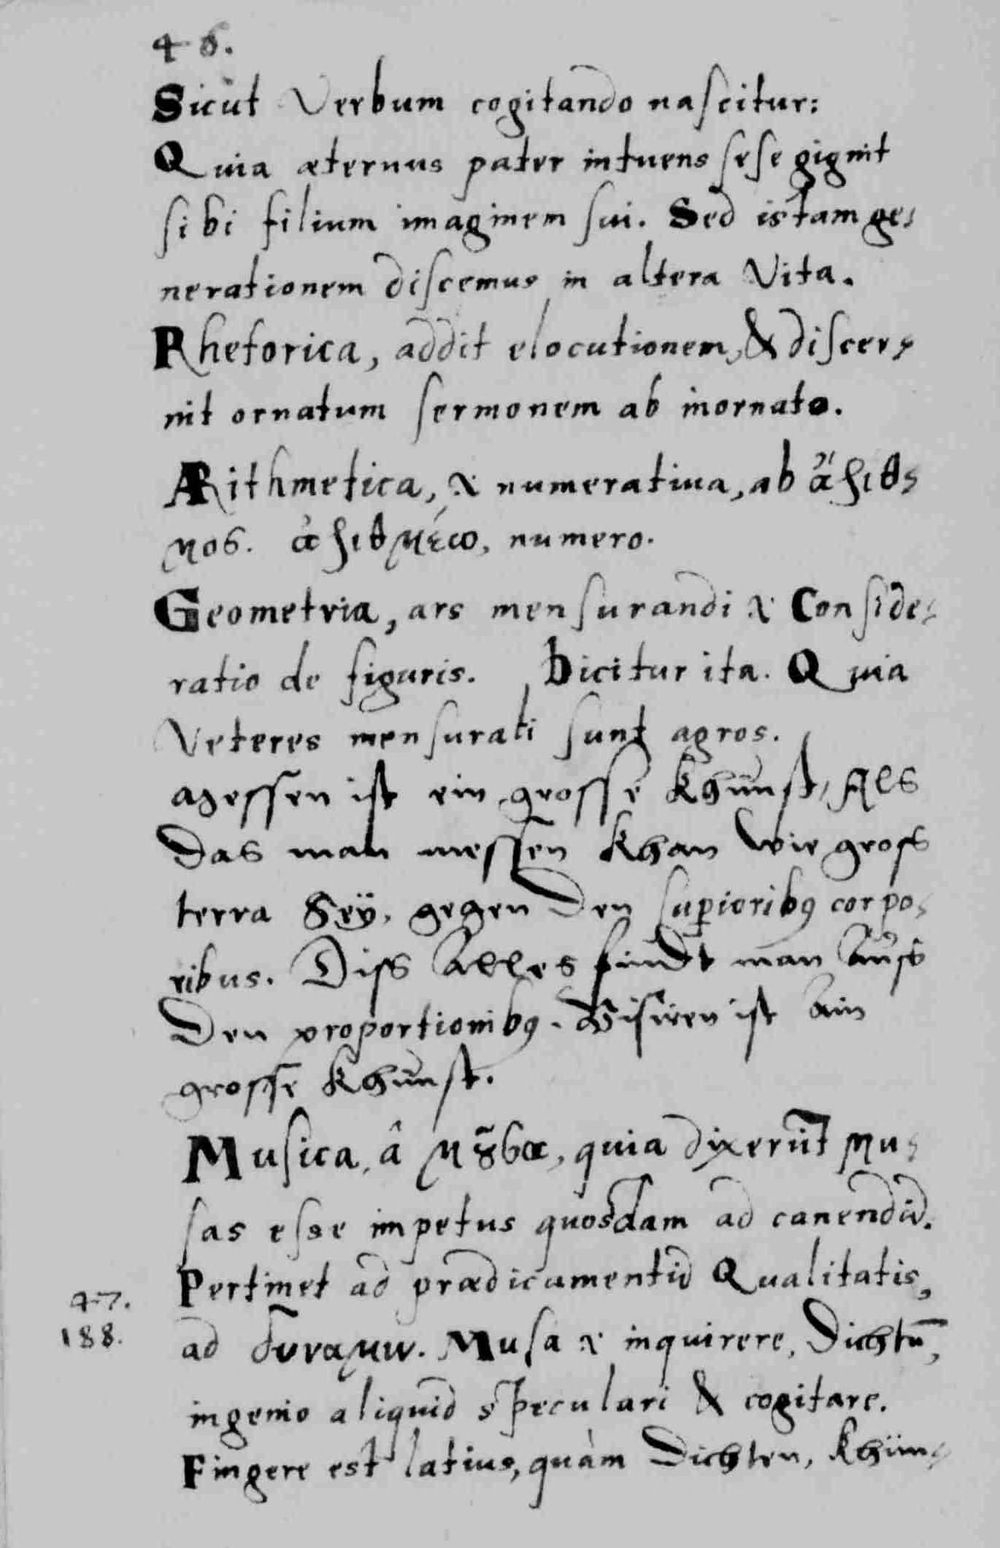 46.
Sicut Verbum cogitando nascitur:
Quia æternus pater intuens sese gignit
sibi filium imaginem sui. Sed istam ge-
nerationem discemus in altera Vita.
Rhetorica, addit elocutionem, & discer-
nit ornatum sermonem ab inornato.
ARithmetica, numerativa, ab ἄριθ-
μος. ἀριθμέω, numero.
Geometria, ars mensurandi Conside-
ratio de figuris. Dicitur ita. Quia
Veteres mensurati sunt agros.
Messen ist ein grosse Khunst, Als
das man messen khan wie gross
terra Seÿ, gegen den superiorib9 corpo-
ribus. Diss Alles findt man Auss
den proportionib9. Visiren ist Ain
grosse Khunst.
Musica, â μȣσα, quia dixerūt Mu-
sas esse impetus quosdam ad canendū.
Pertinet ad prædicamentū Qualitatis,
47.
188.
ad δυναμιν. Musa inquirere, Dichtn̄,
ingenio aliquid speculari & cogitare.
Fingere est latius, quàm Dichten, Khün-